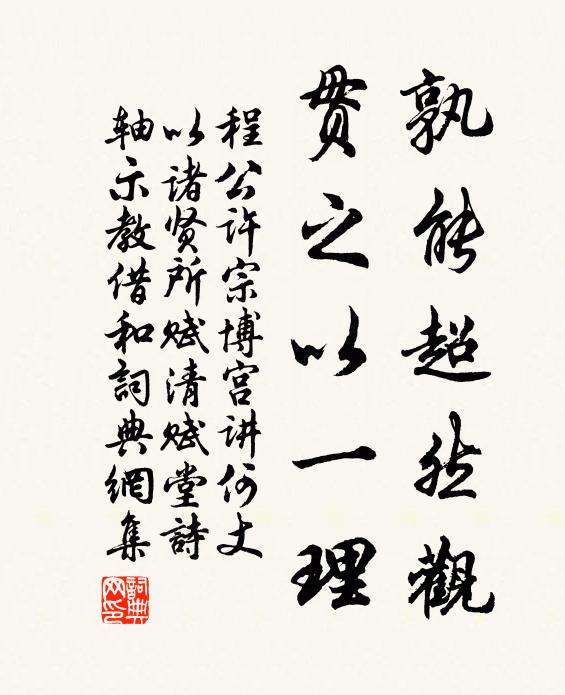 孰能超然觀
貫之以一理
程公許宗博宫讲何丈
以诸贤所赋清赋堂詩
轴示教借和詞典網集
詞典網印